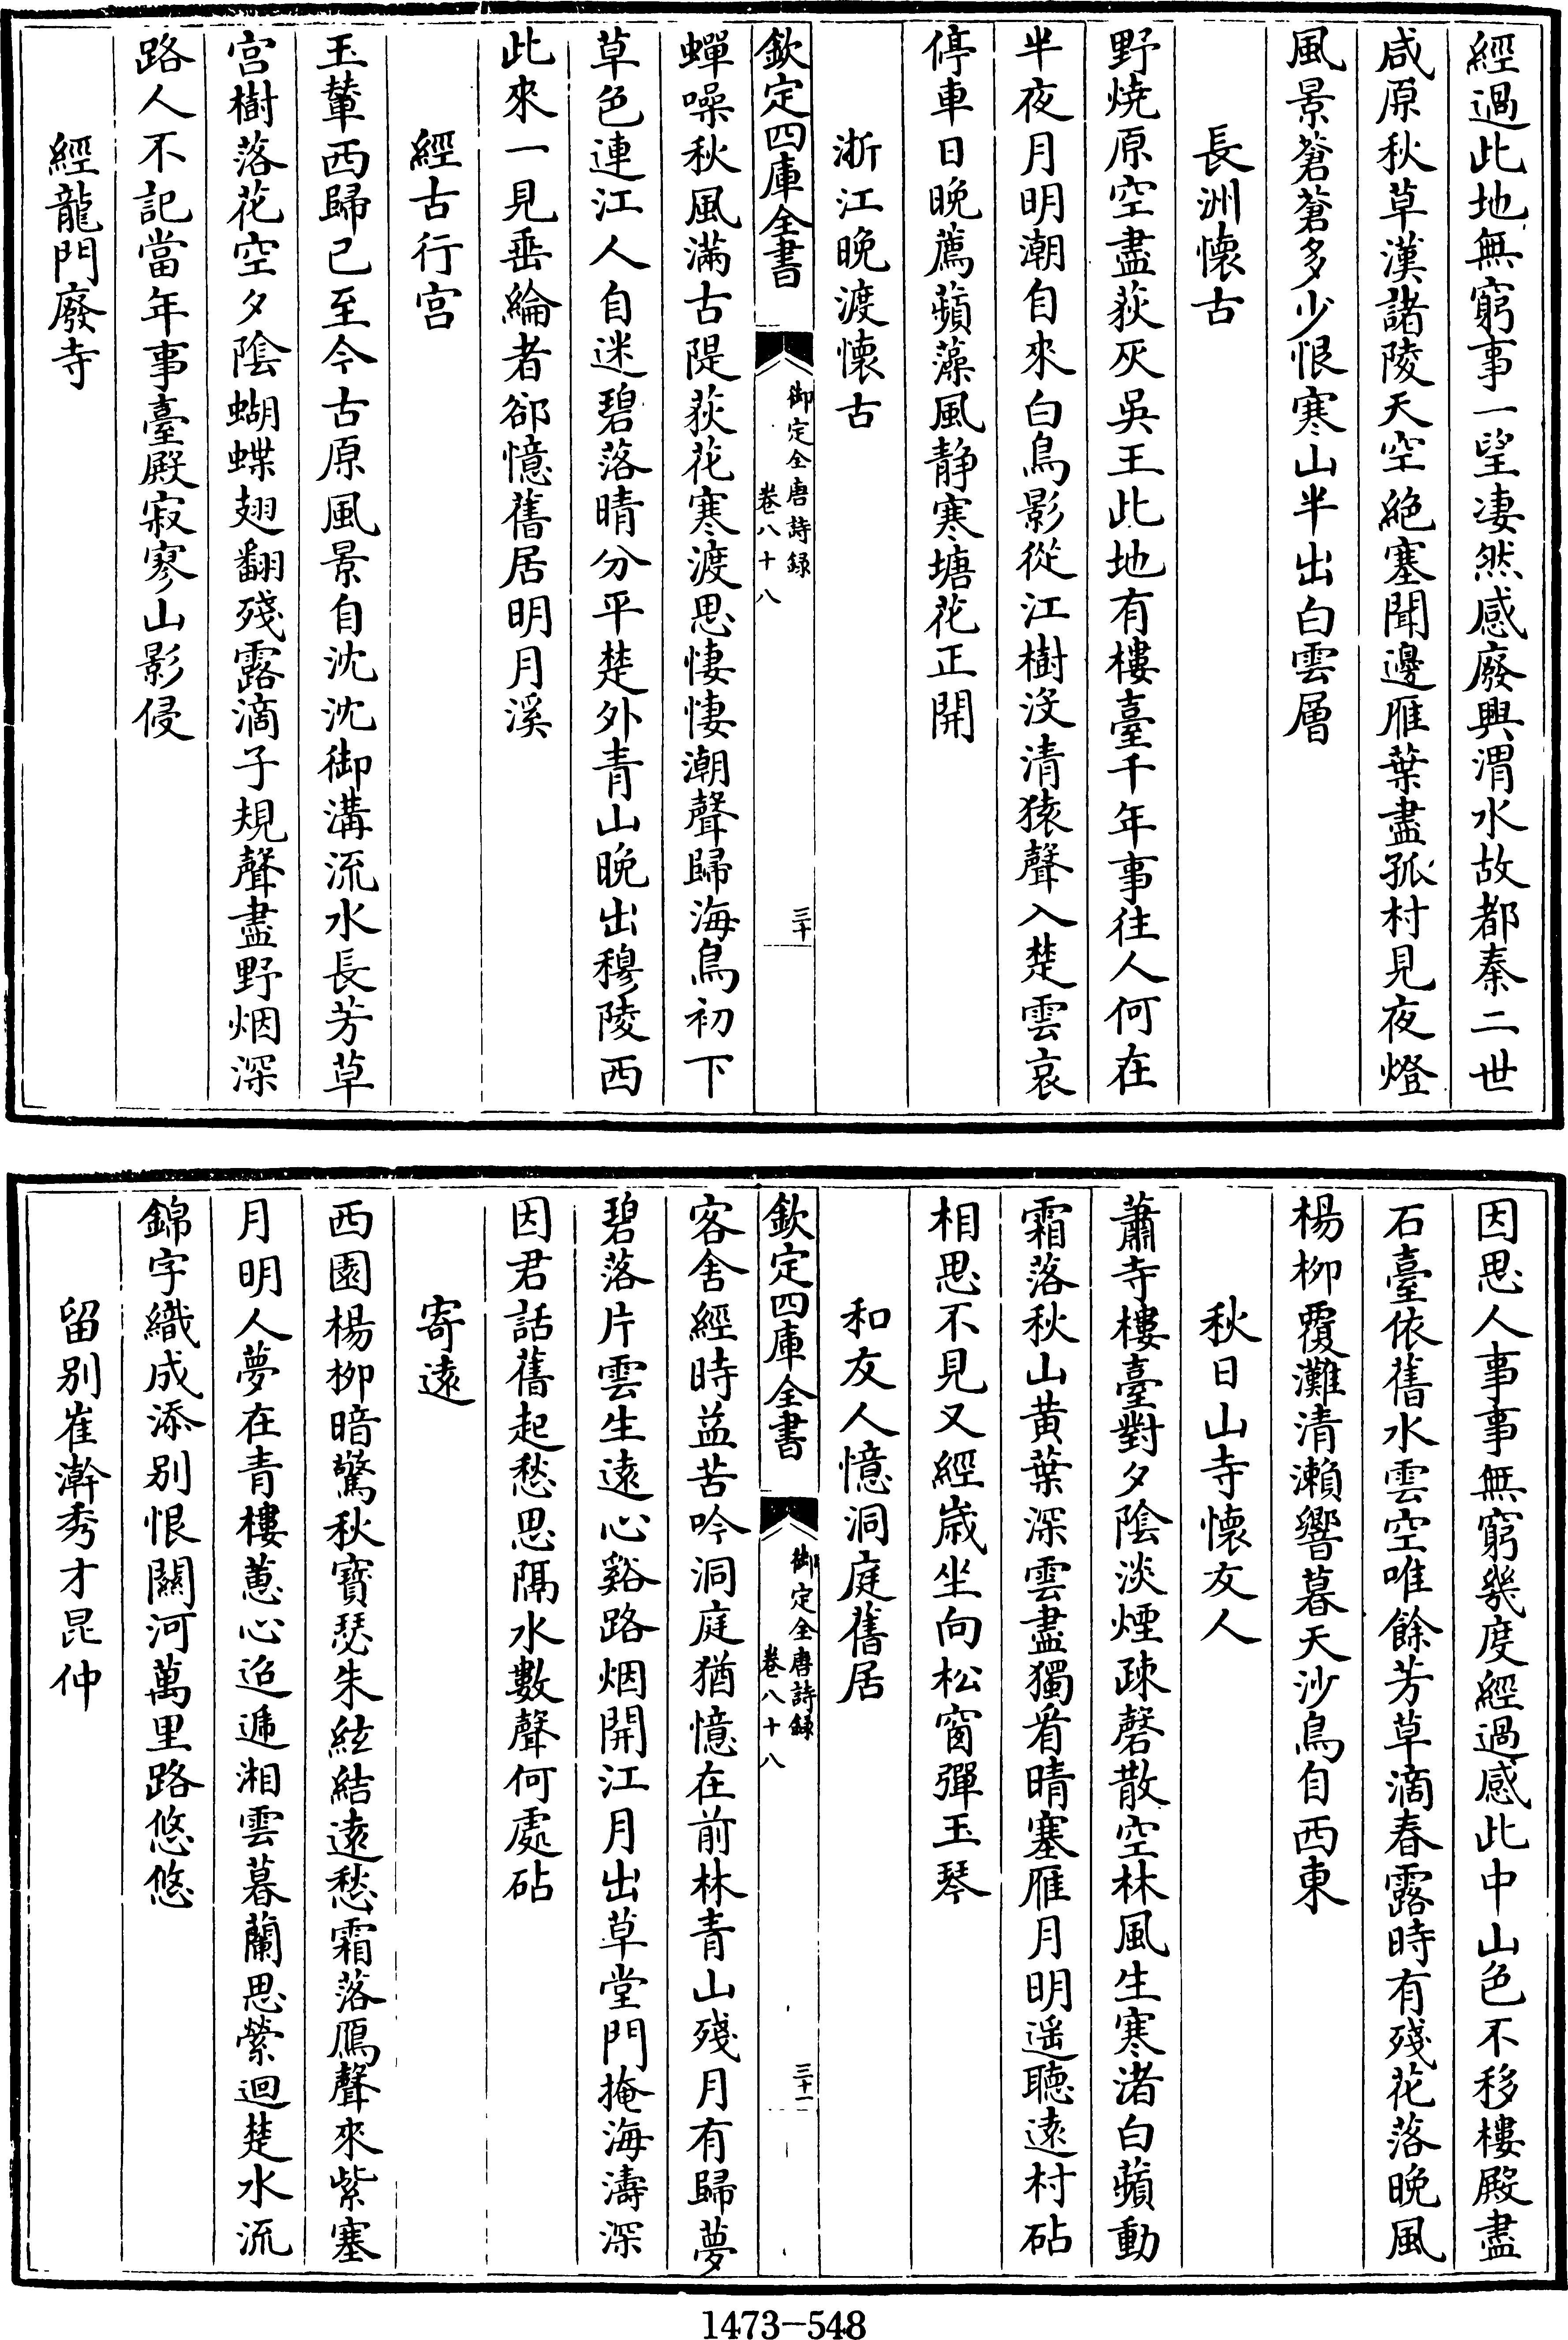 經過此地無窮事一望凄然感廢興渭水故都秦二世
咸原秋草漢諸陵天空絶塞聞邊雁葉盡孤村見夜燈
風景蒼蒼多少恨寒山半出白雲層
長洲懐古
野燒原空盡荻灰吳王此地有樓臺千年事往人何在
半夜月明潮自來白鳥影從江樹没清猿聲入楚雲哀
停車日晚薦蘋藻風静寒塘花正開
浙江晚渡懐古
欽定四庫全書
御定全唐詩録
卷八十八
三十
蟬噪秋風滿古隄荻花寒渡思悽悽潮聲歸海鳥初下
草色連江人自迷碧落晴分平楚外青山晚出穆陵西
此來一見垂綸者郤憶舊居明月溪
經古行宫
玉輦西歸已至今古原風景自沈沈御溝流水長芳草
宫樹落花空夕陰蝴蝶翅翻殘露滴子規聲盡野烟深
路人不記當年事臺殿寂寥山影侵
經龍門廢寺
因思人事事無窮幾度經過感此中山色不移樓殿盡
石臺依舊水雲空唯餘芳草滴春露時有殘花落晚風
楊柳覆灘清瀨響暮天沙鳥自西東
秋日山寺懐友人
蕭寺樓臺對夕陰淡煙疎磬散空林風生寒渚白蘋動
霜落秋山黄葉深雲盡獨看晴塞雁月明遥聽遠村砧
相思不見又經歲坐向松窗彈玉琴
和友人憶洞庭舊居
欽定四庫全書
御定全唐詩録
卷八十八
三十一
客舍經時益苦吟洞庭猶憶在前林青山殘月有歸夢
碧落片雲生遠心谿路烟開江月出草堂門掩海濤深
因君話舊起愁思隔水數聲何處砧
寄遠
西園楊柳暗驚秋寶瑟朱絃結遠愁霜落鴈聲來紫塞
月明人夢在青樓蕙心迢遞湘雲暮蘭思縈迴楚水流
錦字織成添别恨關河萬里路悠悠
留别崔澣秀才昆仲
1473-548